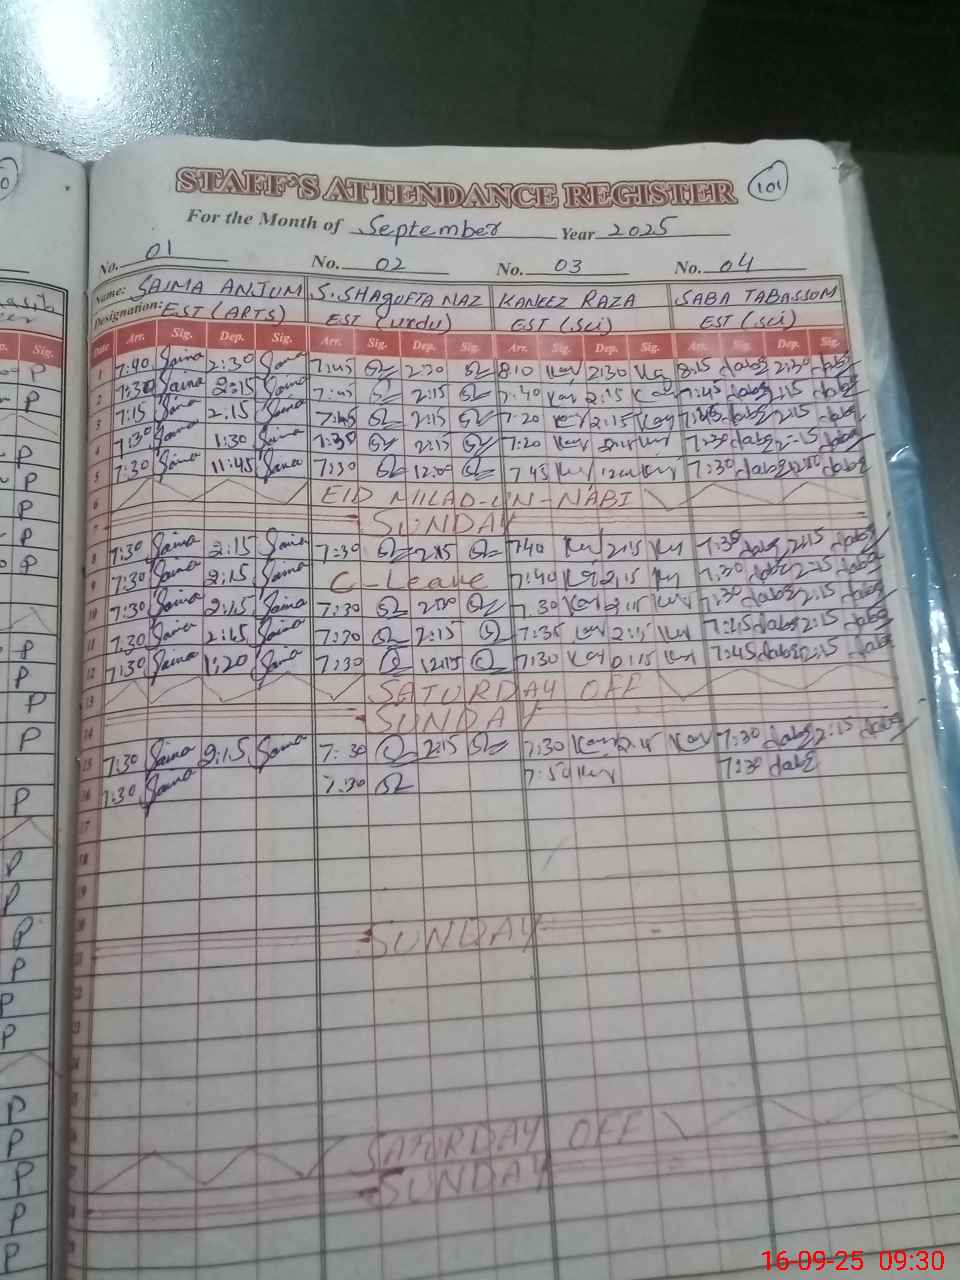 STAFF'S ATTENDANCE REGISTER 101
For the Month of September Year 2025
No. 01 No. 02 No. 03 No. 04
Name: SAIMA ANJUM S. SHAGUFTA NAZ KANEEZ RAZA SABA TABASSOM
Designation: EST (ARTS) EST (urdu) EST (.sci) EST (.sci)
Date Arr. Sig. Dep. Sig. Arr. Sig. Dep. Sig. Arr. Sig. Dep. Sig. Arr. Sig. Dep. Sig.
1 7:40 Saima 2:30 Saima 7:45 2:30 8:10 Kay 2:30 Kay 8:15 Saba 2:30 Saba
2 7:30 Saima 2:15 Saima 7:45 2:15 7:40 Kay 2:15 Kay 7:45 Saba 2:15 Saba
3 7:15 Saima 2:15 Saima 7:45 2:15 7:20 Kay 2:15 Kay 7:45 Saba 2:15 Saba
4 7:30 Saima 1:30 Saima 7:30 2:15 7:20 Kay Kay 7:30 Saba 2:15 Saba
5 7:30 Saima 11:45 Saima 7:30 12:00 7:45 Kay Kay 7:30 Saba Saba
6 EID MILAD-UN-NABI
7 SUNDAY
8 7:30 Saima 2:15 Saima 7:30 2:15 7:40 Kay 2:15 Kay 7:30 Saba 2:15 Saba
9 7:30 Saima 2:15 Saima C-Leave 7:40 Kay 2:15 Kay 7:30 Saba 2:15 Saba
10 7:30 Saima 2:15 Saima 7:30 7:30 Kay 2:15 Kay 7:30 Saba 2:15 Saba
11 7:30 Saima 2:15 Saima 7:30 2:15 7:35 Kay 2:15 Kay 7:45 Saba 2:15 Saba
12 7:30 Saima 1:20 Saima 7:30 12:15 7:30 Kay 01:15 Kay 7:45 Saba 2:15 Saba
13 SATURDAY OFF
14 SUNDAY
15 7:30 Saima 2:15 Saima 7:30 2:15 7:30 Kay 2:15 Kay 7:30 Saba 2:15 Saba
16 7:30 Saima 7:30 7:50 Kay 7:30 Saba
17
18
19
SUNDAY
SATURDAY OFF
SUNDAY
16-09-25 09:30